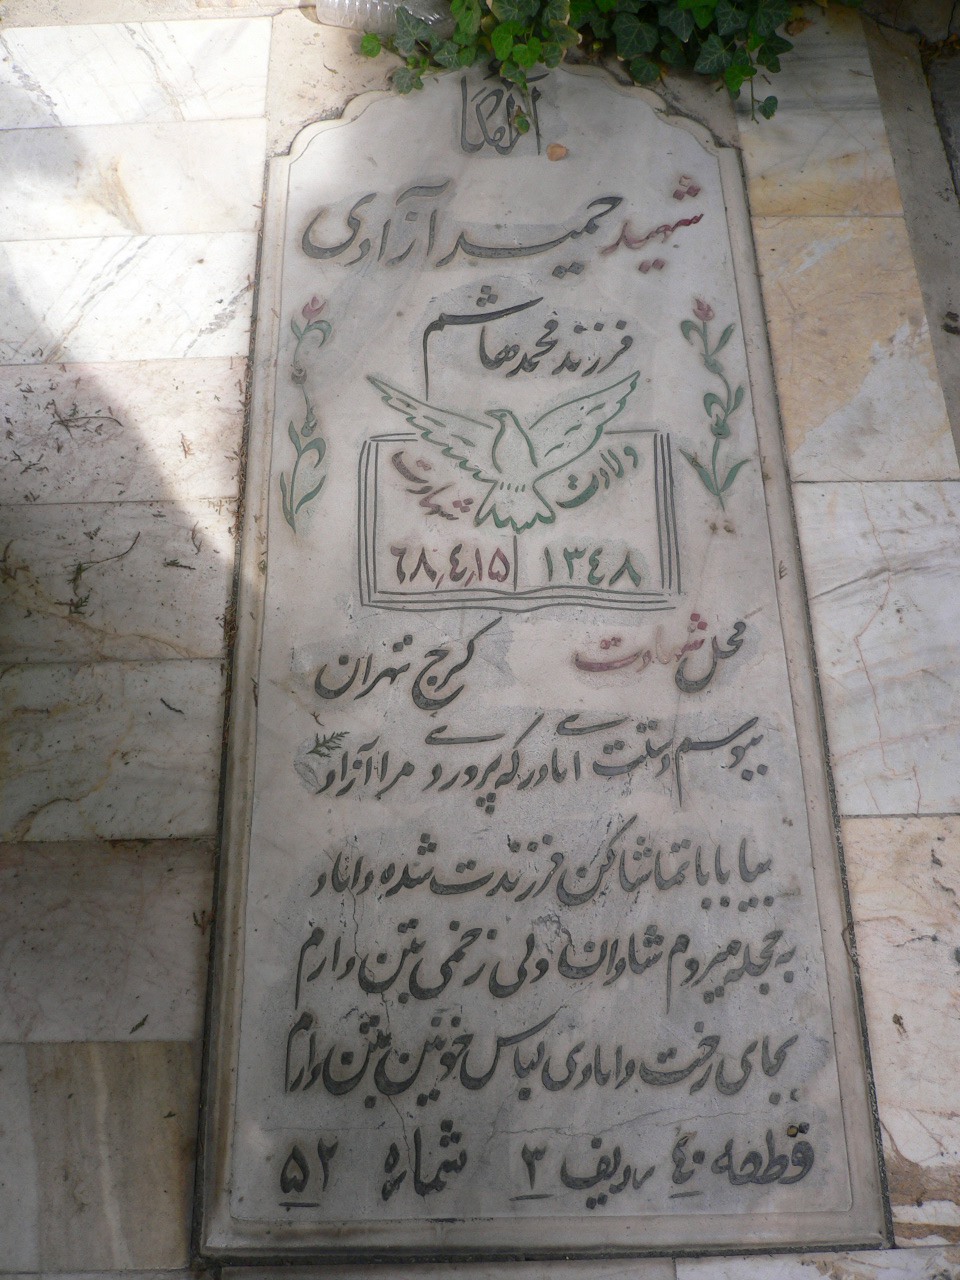 آرامگاه
شهید حمید آزادی
فرزند محمدهاشم
ولادت شهادت
۱۳۴۸ ۶۸٫۴٫۱۵
محل شهادت کرج تهران
ببوسم دستت ای مادر که پروردی مرا آزاد
بیا بابا تماشا کن فرزندت شده داماد
به حجله میروم شادان ولی زخمی بتن دارم
بجای رخت دامادی لباس خونین بتن دارم
قطعه ۴۰ ردیف ۳ شماره ۵۲